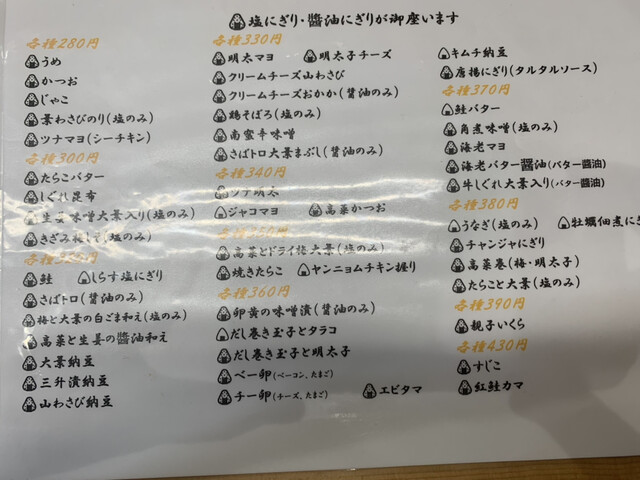 塩にぎり・醬油にぎりが御座います
各種280円
うめ
かつお
じゃこ
葉わさびのり(塩のみ)
ツナマヨ(シーチキン)
各種300円
たらこバター
しぐれ昆布
生姜味噌大葉入り(塩のみ)
(塩のみ)
鮭 しらす塩にぎり
さばトロ(醤油のみ)
梅と大葉の白ごま和え(塩のみ)
高菜と生姜の醬油和え
大葉納豆
三升漬納豆
山わさび納豆
各種330円
明太マヨ 明太子チーズ
クリームチーズ山わさび
クリームチーズおかか(醤油のみ)
鶏そぼろ(塩のみ)
南蛮辛味噌
さばトロ大葉まぶし(醤油のみ)
各種340円
ツナ明太
ジャコマヨ 高菜かつお
高菜とドライ梅大葉(塩のみ)
焼きたらこ ヤンニョムチキン握り
各種360円
卵黄の味噌漬(醤油のみ)
だし巻き玉子とタラコ
だし巻き玉子と明太子
ベー卵(ベーコン、たまご)
チー卵(チーズ、たまご) エビタマ
キムチ納豆
唐揚にぎり(タルタルソース)
各種370円
鮭バター
角煮味噌(塩のみ)
海老マヨ
海老バター醬油(バター醬油)
牛しぐれ大葉入り(バター醬油)
各種380円
うなぎ(塩のみ) 牡蠣佃煮に
チャンジャにぎり
高菜巻(梅・明太子)
たらこと大葉(塩のみ)
各種390円
親子いくら
各種430円
すじこ
紅鮭カマ